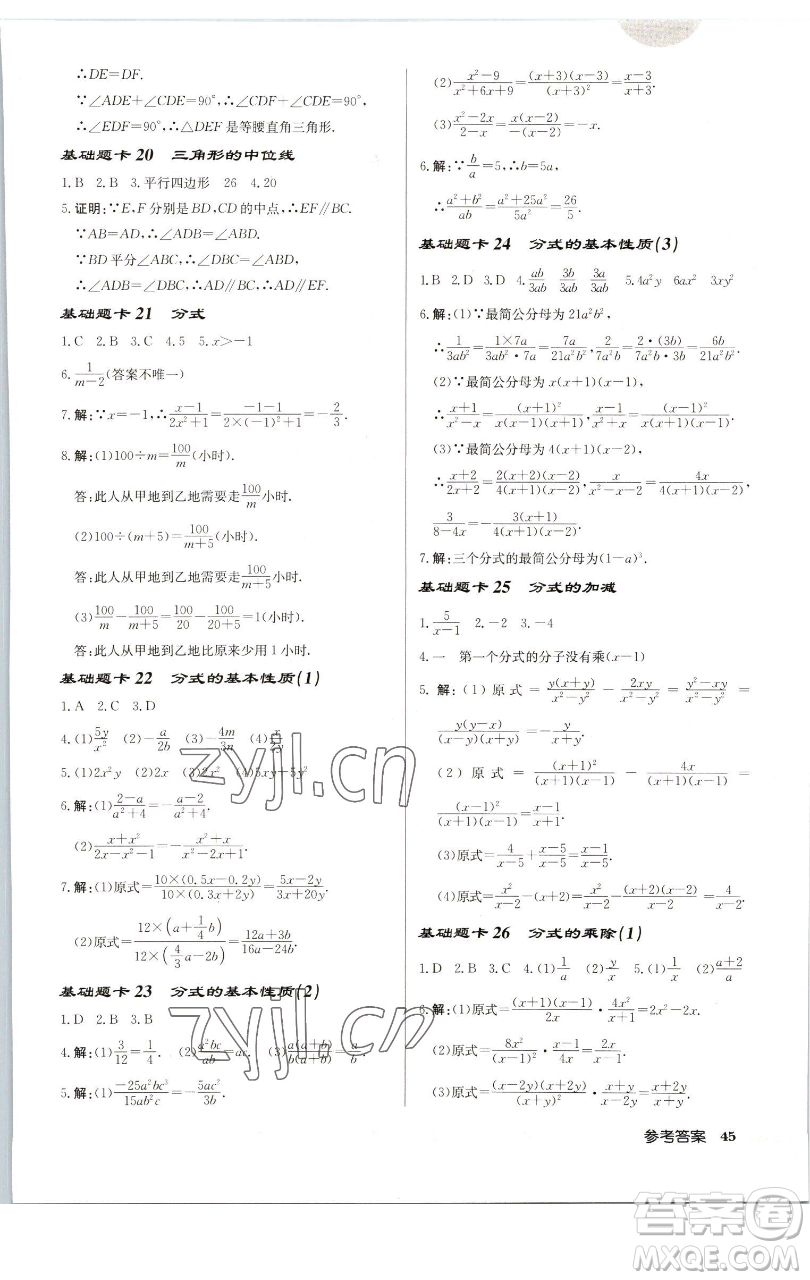 ∴DE=DF.
∵∠ADE+∠CDE=90°,∴∠CDF+∠CDE=90°,
∴∠EDF=90°,∴△DEF是等腰直角三角形.
基础题卡20 三角形的中位线
1.B 2.B 3.平行四边形 26 4.20
5.证明:∵E,F分别是BD,CD的中点,∴EF∥BC.
∵AB=AD,∴∠ADB=∠ABD.
∵BD平分∠ABC,∴∠ABD=∠DBC,
∴∠ADB=∠DBC,∴AD∥BC,∴AD∥EF.
基础题卡21 分式
1.C 2.B 3.C 4.5 5.x>-1
6.1/(m-2)(答案不唯一)
7.解:∵x=-1,∴(x-1)/(2x²+1)=(-1-1)/(2×(-1)²+1)=-2/3.
8.解:(1)100÷m=100/m(小时).
答:此人从甲地到乙地需要走100/m小时.
(2)100÷(m+5)=100/(m+5)(小时).
答:此人从甲地到乙地需要走100/(m+5)小时.
(3)100/m-100/(m+5)=100/20-100/(20+5)=1(小时).
答:此人从甲地到乙地比原来少用1小时.
基础题卡22 分式的基本性质(1)
1.A 2.C 3.D
4.(1)5y/x² (2)-a/2b (3)-4m/3n (4)x/2y
5.(1)2x²y (2)x (3)2x² (4)5xy+5y²
6.解:(1)(2-a)/(a²+4)=-(a-2)/(a²+4).
(2)(x+x²)/(2x-x²-1)=-(x²+x)/(x²-2x+1).
7.解:(1)原式=10×(0.5x-0.2y)/(10×(0.3x+0.7y))=(5x-2y)/(3x+7y).
(2)原式=12×(a+1/4 b)/(12×(4/3 a-2b))=(12a+3b)/(16a-24b).
基础题卡23 分式的基本性质(2)
1.D 2.B 3.B
4.解:(1)3/12=1/4. (2)a²bc/ab=ac. (3)a(a+b)/b(a+b)=a/b.
5.解:(1)-25a²bc³/15ab²c=-5ac²/3b.
(2)(x²-9)/(x²+6x+9)=(x+3)(x-3)/(x+3)²=(x-3)/(x+3).
(3)(x²-2x)/(2-x)=x(x-2)/(-(x-2))=-x.
6.解:∵b/a=5,∴b=5a,
∴(a²+b²)/ab=(a²+25a²)/5a²=26/5.
基础题卡24 分式的基本性质(3)
1.B 2.D 3.D 4.ab/3ab 3b/3ab 3a/3ab 5.4a²y 6ax² 3xy²
6.解:(1)∵最简公分母为21a²b²,
∴1/3ab²=1×7a/(3ab²·7a)=7a/21a²b²,2/7a²b=2·(3b)/(7a²b·3b)=6b/21a²b².
(2)∵最简公分母为x(x+1)(x-1),
∴(x+1)/(x²-x)=(x+1)²/(x(x+1)(x-1)),(x-1)/(x²+x)=(x-1)²/(x(x+1)(x-1)).
(3)∵最简公分母为4(x+1)(x-2),
∴(x+2)/(2x+2)=2(x+2)(x-2)/(4(x+1)(x-2)),x/(x²-x-2)=4x/(4(x+1)(x-2)),
3/(8-4x)=-3(x+1)/(4(x+1)(x-2)).
7.解:三个分式的最简公分母为(1-a)³.
基础题卡25 分式的加减
1.5/(x-1) 2.-2 3.-4
4.一 第一个分式的分子没有乘(x-1)
5.解:(1)原式=y(x+y)/(x²-y²)-2xy/(x²-y²)=(y²-xy)/(x²-y²)=
y(y-x)/((x+y)(x-y))=-y/(x+y).
(2)原式=(x+1)²/((x+1)(x-1))-4x/((x+1)(x-1))=
(x-1)²/((x+1)(x-1))=(x-1)/(x+1).
(3)原式=4/(x-5)+(x-5)/(x-5)=(x-1)/(x-5).
(4)原式=x²/(x-2)-(x+2)(x-2)/(x-2)=4/(x-2).
基础题卡26 分式的乘除(1)
1.D 2.B 3.C 4.(1)1/a (2)y/x 5.(1)1/a (2)(a+2)/a
6.解:(1)原式=(x+1)(x-1)/2x·4x²/(x+1)=2x²-2x.
(2)原式=8x²/(x-1)²·(x-1)/4x=2x/(x-1).
(3)原式=(x-2y)(x+2y)/(x+y)²·(x+y)/(x+2y)=(x-2y)/(x+y).
参考答案 45
zyjl.cn
zyjl.cn
答案圈
MXQE.COM